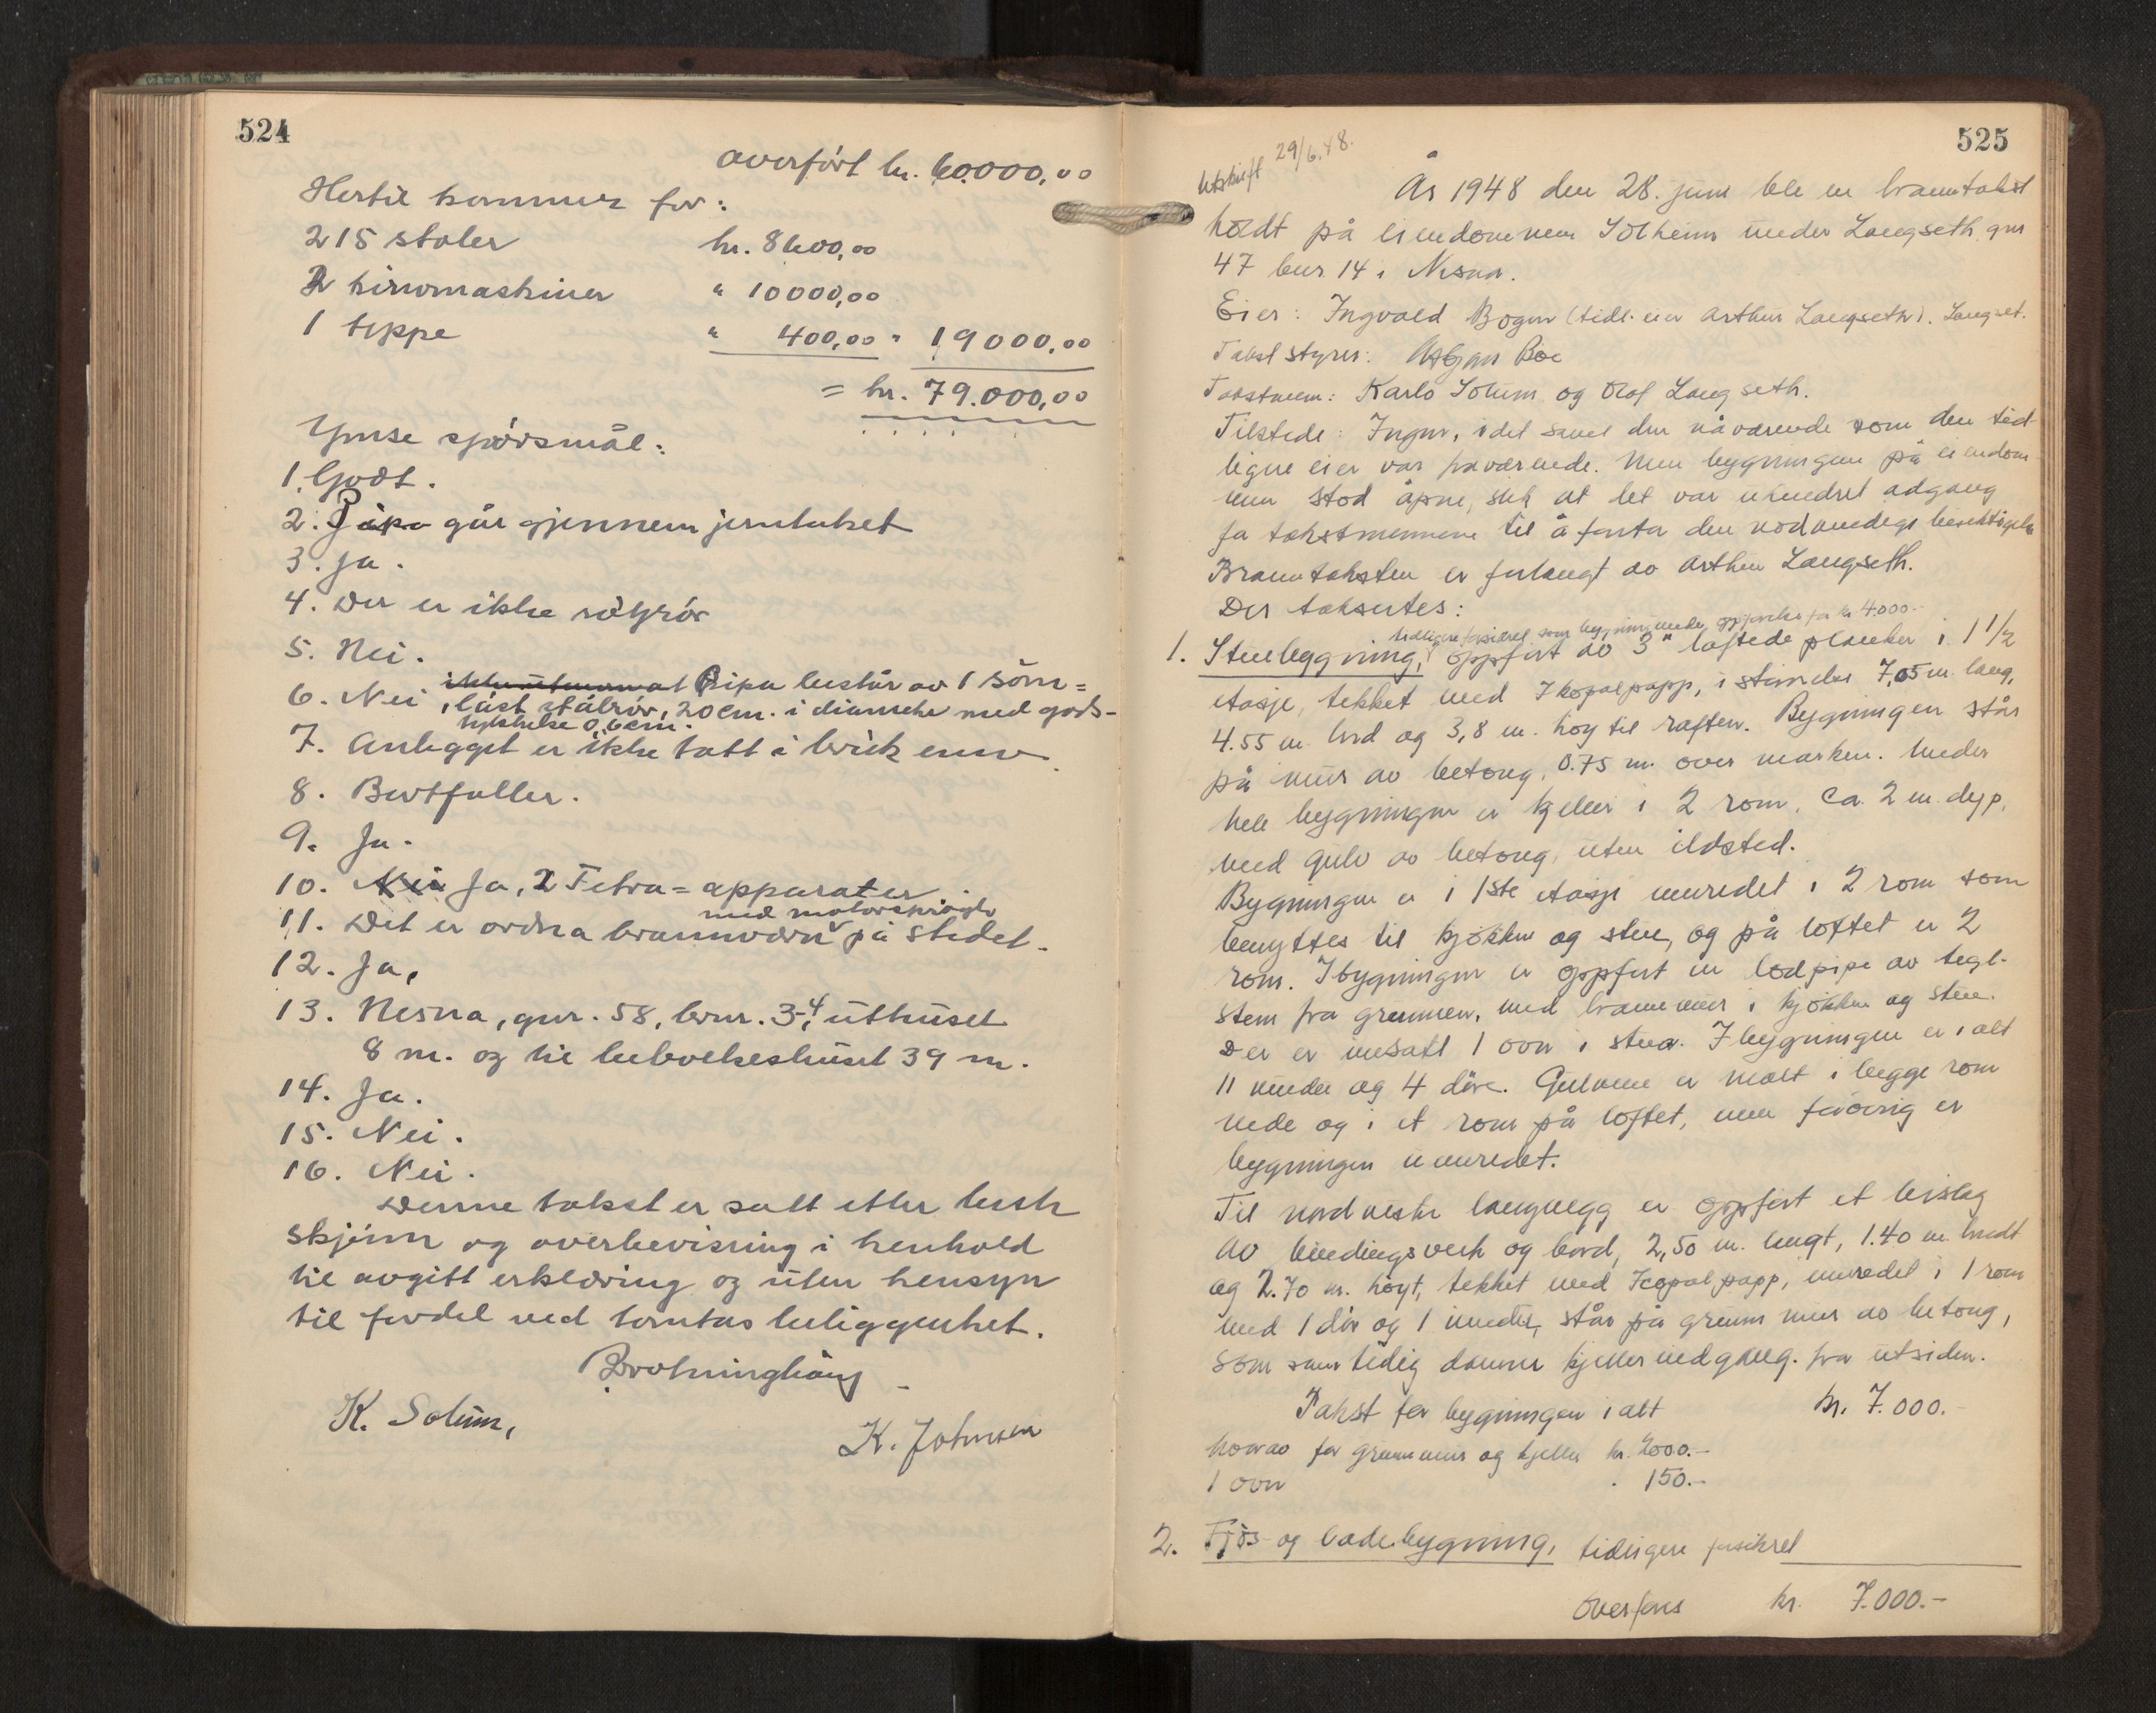 524
overfört kr. 60000,00
Hertil kommer for:
215 stoler kr. 8600,00
2 kinomaskiner " 10000,00
1 teppe " 400,00 " 19000,00
= kr. 79.000,00
Ymse spörsmål:
1. Godt.
2. Pipa går gjennem jerntaket
3. Ja.
4. Der er ikke
5. Nei.
6. Nei, Pipa består av 1 söm=
låst stålrör, 20 cm. i diameter med gods-
tykkelse 0,6 cm.
7. Anlegget er ikke tatt i bruk ennu
8. Bortfaller.
9. Ja.
10. Nei Ja, 2 Tetra=apparater
med motorspröite
11. Det er ordna brannvern på stedet.
12. Ja,
13. Nesna, gnr. 58, bnr. 3-4, uthuset
8 m. og til beboelseshuset 39 m.
14. Ja.
15. Nei.
16. Nei.
Denne takst er satt etter beste
skjönn og overbevisning i henhold
til avgitt erklæring og uten hensyn
til fordel ved tomtas beliggenhet.
K. Solum,
K. Johnsen
525
Utskrift 29/6.48.
År 1948 den 28. juni ble en branntakst
holdt på eiendommen Solheim under Langseth gnr
47 bnr. 14 i Nesna.
Eier: Ingvald Bogen (tidl. eier Arthur Langseth). Langset.
Takststyrer: Asbjørn Boe
Takstmenn: Karlo Solum og Olaf Langseth.
Tilstede: Ingen, idet såvel den nåværende som den tid-
ligere eier var fraværende. Men bygningene på eiendom-
men stod åpne, slik at det var uhindret adgang
for takstmennene til å foreta den nødvendige besiktigelse
Branntaksten er forlangt av Arthur Langseth.
Der takseres:
tidligere forsikret som bygning under oppförelse for kr 4.000.-
1. Stuebygning, oppfört av 3" laftede planker i 1 1/2
etasje, tekket med Ikopalpapp, i störrelse 7,05 m. lang,
4.55 m. bred og 3,8 m. höy til raften. Bygningen står
på mur av betong, 0.75 m. over marken. Under
hele bygningen er kjeller i 2 rom, ca. 2 m. dyp,
med gulv av betong, uten ildsted.
Bygningen er i 1ste etasje innredet i 2 rom som
benyttes til kjökken og stue, og på loftet er 2
rom. I bygningen er oppfört en lodpipe av tegl-
sten fra grunnen, med brannmur i kjökken og stue.
Der er innsatt 1 ovn i stua. I bygningen er i alt
11 vinduer og 4 döre. Gulvene er malt i begge rom
nede og i et rom på loftet, men forövrig er
bygningen uinnredet.
Til nordvestre langvegg er oppfört et bislag
av bindingsverk og bord, 2,50 m. langt, 1.40 m. bredt
og 2.70 m. höyt, tekket med Icopalpapp, innredet i 1 rom
med 1 dör og 1 vindu, står på grunnmur av betong,
som samtidig danner kjellernedgang fra utsiden.
Takst for bygningen i alt kr. 7.000.-
hvorav for grunnmur og kjeller kr. 2000.-
1 ovn " 150.-
2. Fjös- og ladebygning, tidligere forsikret
Overföres kr. 7.000.-